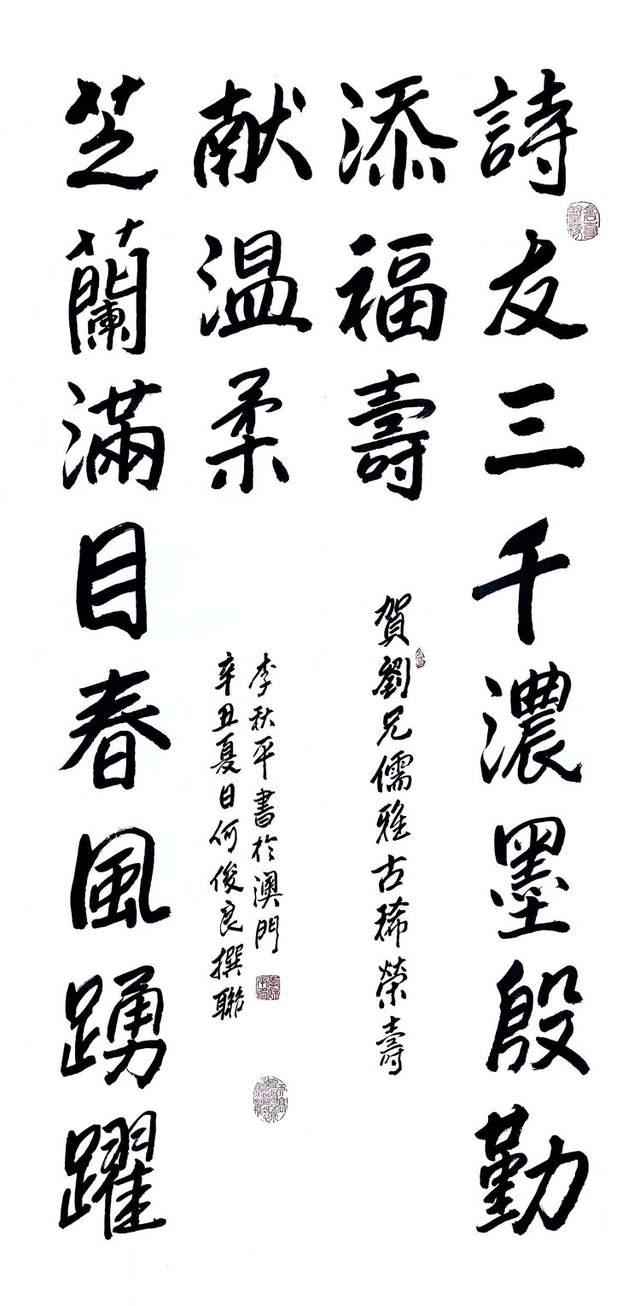 詩友三千濃墨殷勤
添福壽
賀劉兄儒雅古稀榮壽
芝蘭滿目春風踴躍
献温柔
辛丑夏日何俊良撰聯
李秋平書於澳門